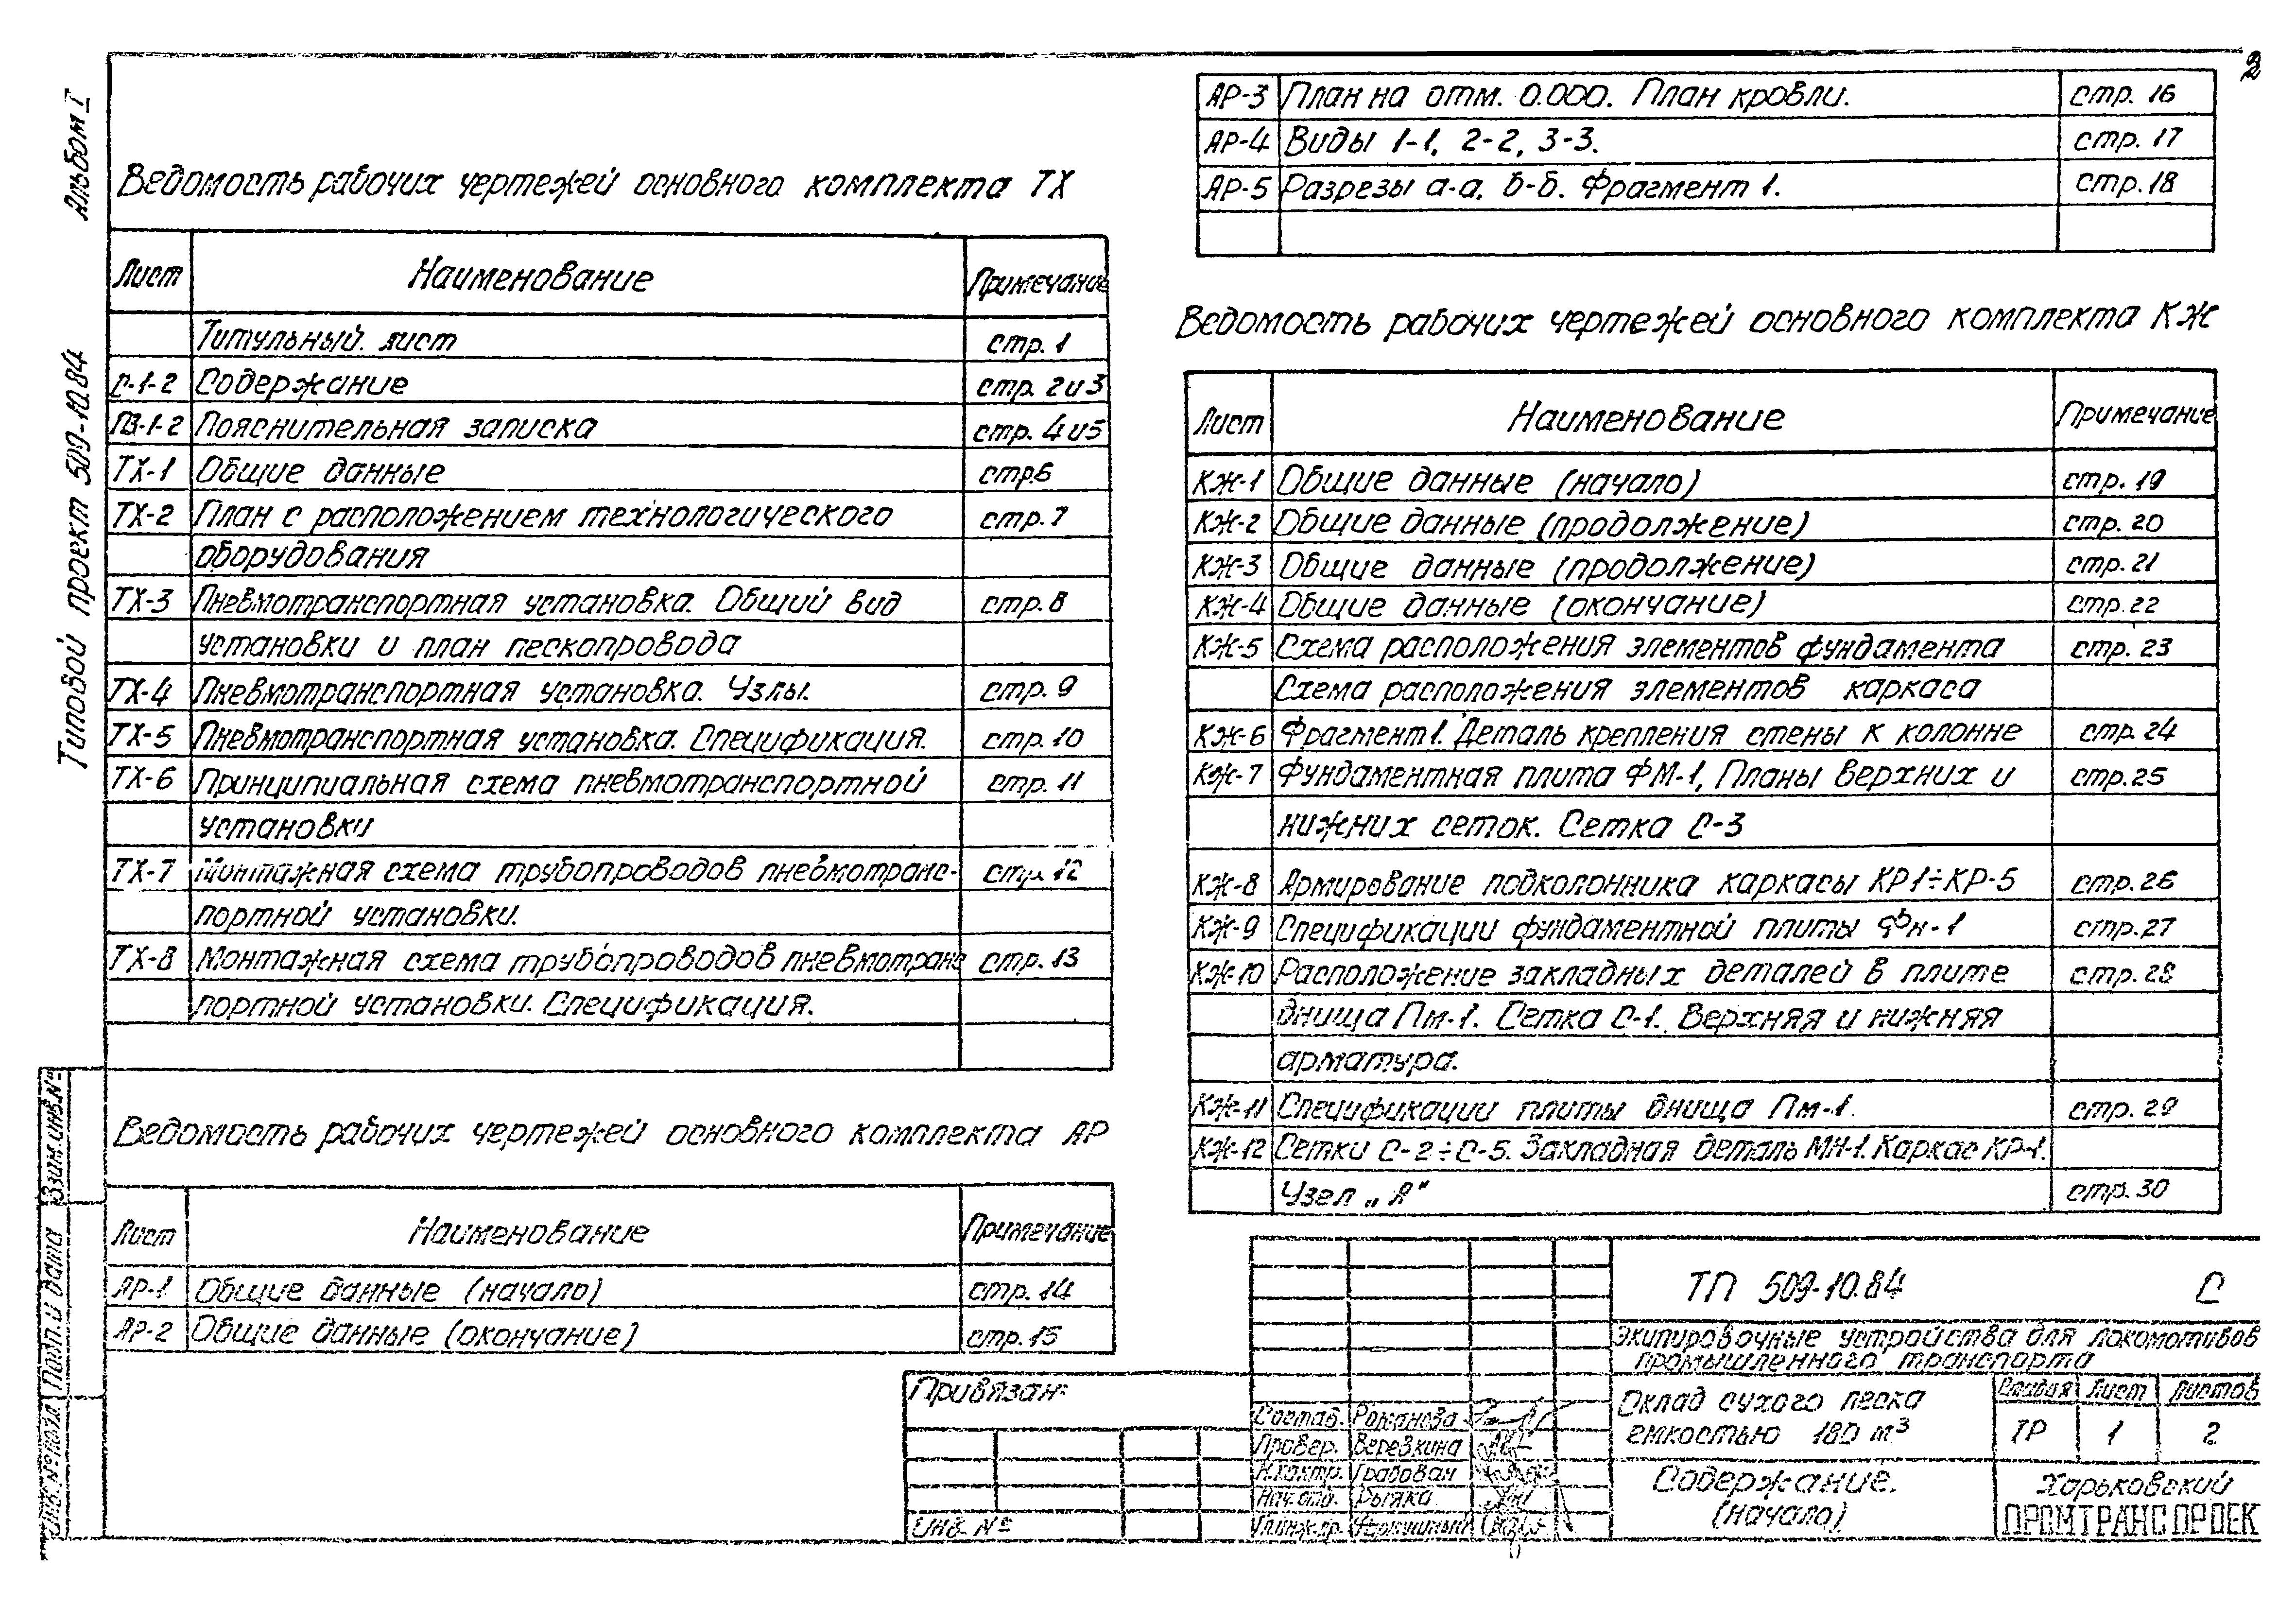 2
Альбом I
Типовой проект 509-10.84
Ведомость рабочих чертежей основного комплекта ТХ
Лист Наименование Примечание
Титульный лист стр. 1
С-1-2 Содержание стр. 2 и 3
ПЗ-1-2 Пояснительная записка стр. 4 и 5
ТХ-1 Общие данные стр.6
ТХ-2 План с расположением технологического стр. 7
оборудования
ТХ-3 Пневмотранспортная установка. Общий вид стр. 8
установки и план пескопровода
ТХ-4 Пневмотранспортная установка. Узлы. стр. 9
ТХ-5 Пневмотранспортная установка. Спецификация. стр. 10
ТХ-6 Принципиальная схема пневмотранспортной стр. 11
установки
ТХ-7 Монтажная схема трубопроводов пневмотранс- стр. 12
портной установки.
ТХ-8 Монтажная схема трубопроводов пневмотранс стр. 13
портной установки. Спецификация.
Ведомость рабочих чертежей основного комплекта АР
Лист Наименование Примечание
АР-1 Общие данные (начало) стр. 14
АР-2 Общие данные (окончание) стр. 15
АР-3 План на отм. 0.000. План кровли. стр. 16
АР-4 Виды 1-1, 2-2, 3-3. стр. 17
АР-5 Разрезы а-а, б-б. Фрагмент 1. стр. 18
Ведомость рабочих чертежей основного комплекта КЖ
Лист Наименование Примечание
КЖ-1 Общие данные (начало) стр. 19
КЖ-2 Общие данные (продолжение) стр. 20
КЖ-3 Общие данные (продолжение) стр. 21
КЖ-4 Общие данные (окончание) стр. 22
КЖ-5 Схема расположения элементов фундамента стр. 23
Схема расположения элементов каркаса
КЖ-6 Фрагмент 1. Деталь крепления стены к колонне стр. 24
КЖ-7 Фундаментная плита ФМ-1, Планы верхних и стр. 25
нижних сеток. Сетка С-3
КЖ-8 Армирование подколонника каркасы КР1÷КР-5 стр. 26
КЖ-9 Спецификации фундаментной плиты Фн-1 стр. 27
КЖ-10 Расположение закладных деталей в плите стр. 28
днища Пм-1. Сетка С-1. Верхняя и нижняя
арматура.
КЖ-11 Спецификации плиты днища Пм-1. стр. 29
КЖ-12 Сетки С-2÷С-5. Закладная деталь МН-1. Каркас КР-1.
Узел „А" стр. 30
Взам.инв.№
Подп. и дата
Инв. № подл.
Привязан:
Инв. №
Состав. Романова
Провер. Березкина
Н.контр. Грабован
Нач. отд. Рыяка
Гл.инж.пр.
ТП 509-10.84 С
Экипировочные устройства для локомотивов
промышленного транспорта
Склад сухого песка
емкостью 180 м³
Стадия Лист Листов
ТР 1 2
Содержание.
(начало)
Харьковский
ПРОМТРАНСПРОЕК